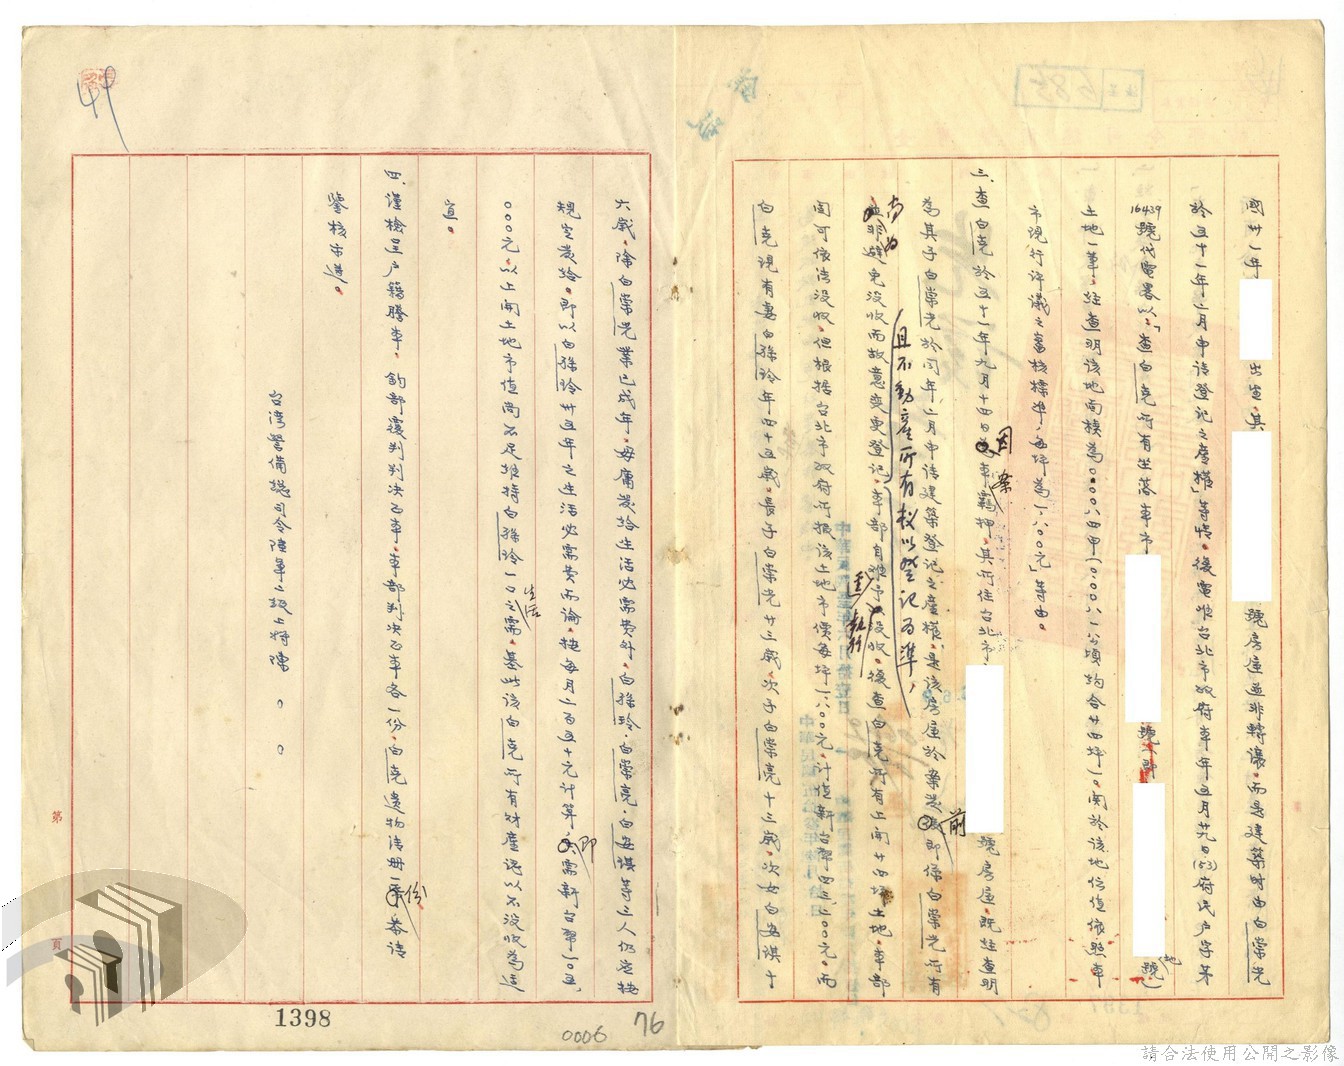 國廿一年 出售，其 號房屋並非轉讓，而是建築時由白崇光
於五十一年二月申請登記之產權」等情。復電准台北市政府本年五月廿九日(53)府民戶字第
16439號代電畧以：「查白克所有坐落本市 號（即 地號）
土地一筆，經查明該地面積為0.00八四甲（0.00八一公頃）約合廿四坪一。關於該地估值依照本
市現行評議之審核標準，每坪為一八00元」等由。
三、查白克於五十一年九月十四日因案羈押，其所住台北市 號房屋，既經查明
為其子白崇光於同年二月申請建築登記之產權，是該房屋於案發前即係白崇光所有
且不動產所有權以登記為準，
尚非避免沒收而故意變更登記，本部自難予執行沒收。復查白克所有上開廿四坪土地，本部
固可依法沒收，但根據台北市政府所報該土地市價每坪一八00元，計值新台幣四三二00元，而
白克現有妻白孫玲年四十五歲，長子白崇光廿三歲，次子白崇亮十三歲，次女白安淇十
六歲，除白崇光業已成年，毋庸發給生活必需費外，白孫玲、白崇亮、白安淇等三人仍應按
規定發給。即以白孫玲廿五年之生活必需費而論，按每月二百五十元計算，即需新台幣一0五、
000元，以上開土地市值尚不足維持白孫玲一口之生活需，基此該白克所有財產認以不沒收為適
宜。
四、謹檢呈戶籍謄本、鈞部覆判判決正本、本部判決正本各一份，白克遺物清冊一份，恭請
鑒核示遵。
台灣警備總司令陸軍二級上將陳○○
44
第 頁
1398
0006
76
請合法使用公開之影像